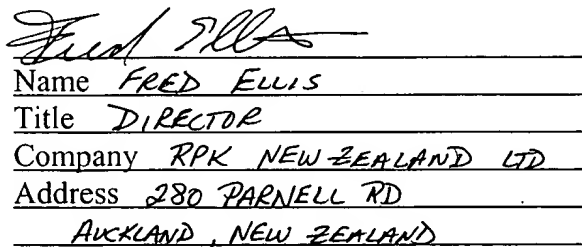 Fred Ellis
Name FRED ELLIS
Title DIRECTOR
Company RPK NEW ZEALAND LTD
Address 280 PARNELL RD
AUCKLAND, NEW ZEALAND